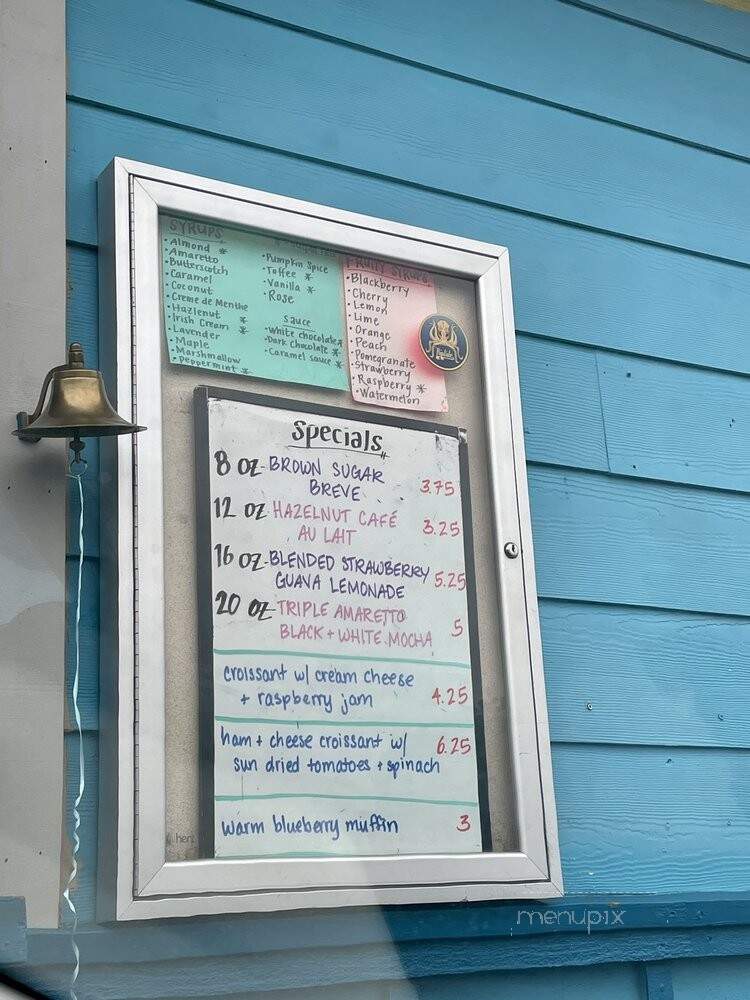 SYRUPS
• Almond *
• Amaretto
• Butterscotch
• Caramel
• Coconut
• Creme de Menthe
• Hazlenut *
• Irish Cream *
• Lavender
• Maple
• Marshmallow
• Peppermint *
• Pumpkin Spice
• Toffee *
• Vanilla *
• Rose
Sauce
• White chocolate *
• Dark Chocolate *
• Caramel sauce *
FRUITY SYRUPS
• Blackberry
• Cherry
• Lemon
• Lime
• Orange
• Peach
• Pomegranate
• Strawberry
• Raspberry *
• Watermelon
Specials
8 OZ - BROWN SUGAR
BREVE 3.75
12 OZ - HAZELNUT CAFÉ
AU LAIT 3.25
16 OZ - BLENDED STRAWBERRY
GUAVA LEMONADE 5.25
20 OZ - TRIPLE AMARETTO
BLACK + WHITE MOCHA 5
croissant w/ cream cheese
+ raspberry jam 4.25
ham + cheese croissant w/ 6.25
sun dried tomatoes + spinach
warm blueberry muffin 3
menupix